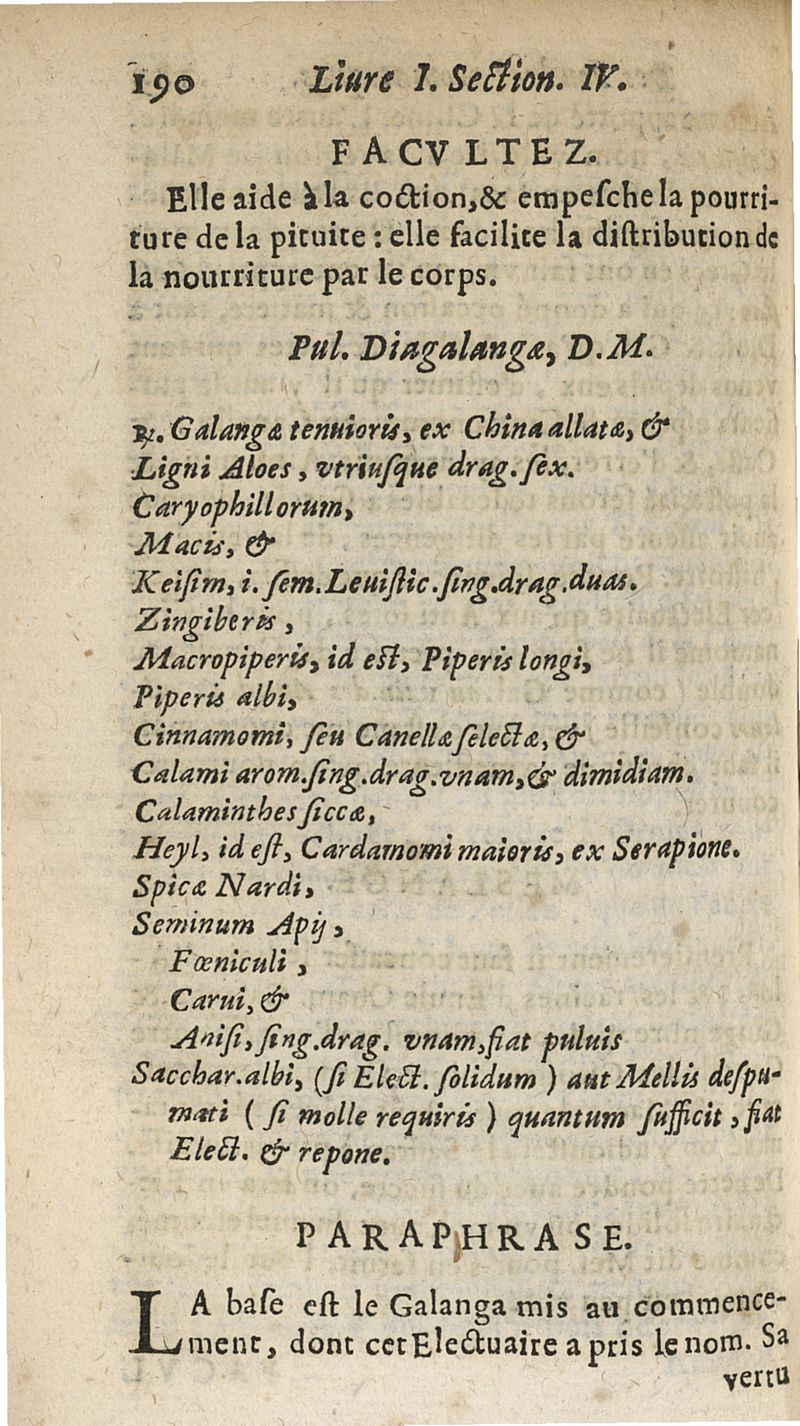 190 Liure I. Section. IV.
FACVLTEZ.
Elle aide à la coction, & empeſche la pourri-
ture de la pituite : elle facilite la diſtribution de
la nourriture par le corps.
Pul. Diagalangæ, D. M.
℞. Galangæ tenuioris, ex China allatæ, &
Ligni Aloes, vtriuſque drag. ſex.
Caryophillorum,
Macis, &
Keiſim, i. ſem. Leuiſtic. ſing. drag. duas.
Zingiberis,
Macropiperis, id eſt, Piperis longi,
Piperis albi,
Cinnamomi, ſeu Canellæ ſelectæ, &
Calami arom. ſing. drag. vnam, & dimidiam.
Calaminthes ſiccæ,
Heyl, id eſt, Cardamomi maioris, ex Serapione.
Spicæ Nardi,
Seminum Apij,
Fœniculi,
Carui, &
Aniſi, ſing. drag. vnam, fiat puluis
Sacchar. albi, (ſi Elect. ſolidum) aut Mellis deſpu-
mati (ſi molle requiris) quantum ſufficit, fiat
Elect. & repone.
PARAPHRASE.
LA baſe eſt le Galanga mis au commence-
ment, dont cet Electuaire a pris le nom. Sa
vertu